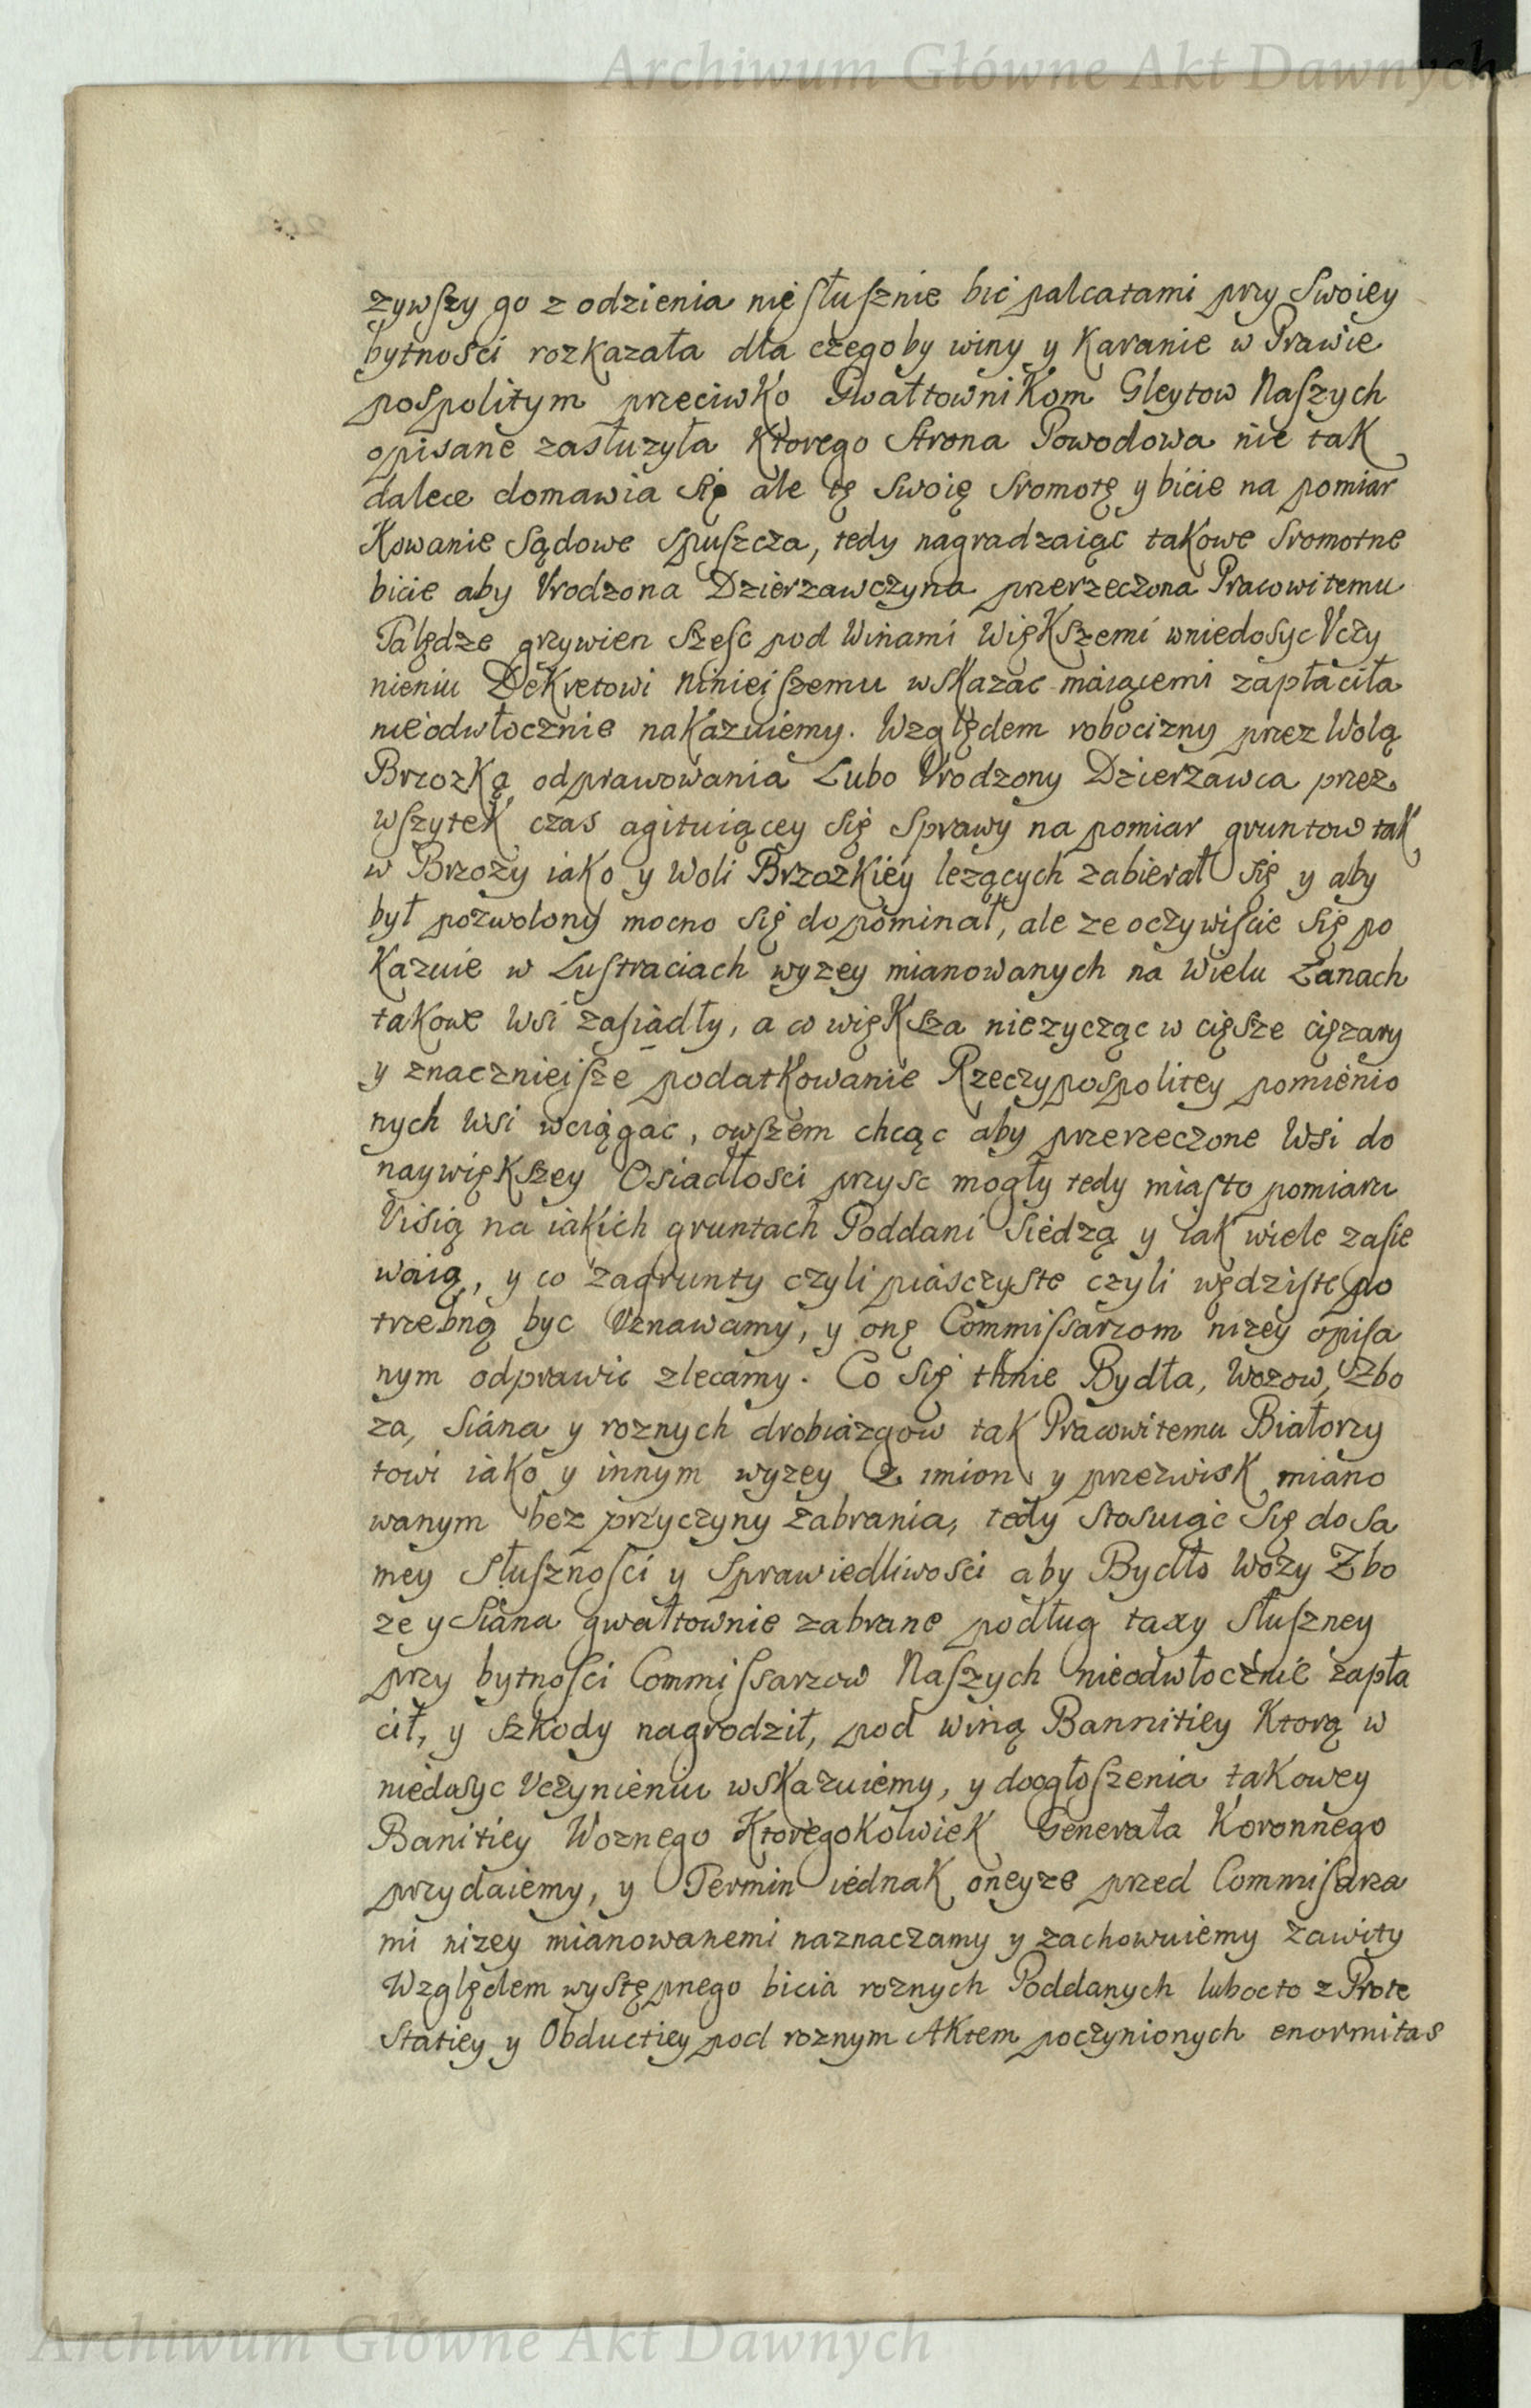 Archiwum Główne Akt Dawnych
zywszy go z odzienia niesłusznie bić palcatami przy Swoiey
bytności rozkazała dla czego by winy y Karanie w Prawie
pospolitym przeciwko Gwałtownikom Gleytow Naszych
opisane zasłuzyła Ktorego Strona Powodowa nie tak
dalece domawia się ale tę swoię sromotę y bicie na pomiar
Kowanie Sądowe spuszcza, tedy nagradzaiąc takowe sromotne
bicie aby Vrodzona Dzierzawczyna przerzeczona Pracowitemu
Palędze grzywien szesc pod Winami Większemi wniedosyc Vczy
nieniu Dekretowi Ninieiszemu wskazac maiącemi zapłaciła
nieodwłocznie nakazuiemy. Względem robocizny przez Wolą
Brzozką odprawowania Lubo Vrodzony Dzierzawca przez
wszytek czas agituiącey się Sprawy na pomiar gruntow tak
w Brzozy iako y Woli Brzozkiey lezących zabierał się y aby
był pozwolony mocno się dopominał, ale ze oczywiscie się po
Kazuie w Lustraciach wyzey mianowanych na Wielu Łanach
takowe Wsi zasiadły, a co większa niezycząc w cięsze cięzary
y znacznieisze podatkowanie Rzeczypospolitey pomienio
nych Wsi wciągac, owszem chcąc aby przerzeczone Wsi do
naywiększey Osiadłosci przysc mogły tedy miasto pomiaru
Visią na iakich gruntach Poddani Siedzą y iak wiele zasie
waią, y co zagrunty czyli piasczyste czyli wędziste po
trzebną byc Vznawamy, y onę Commissarzom nizey opisa
nym odprawic zlecamy. Co się tknie Bydła, Wozow, Zbo
za, Siana y roznych drobiazgow tak Pracowitemu Białorzy
towi iako y innym wyzey z imion y przezwisk miano
wanym bez przyczyny zabrania, tedy stosuiąc się do sa
mey Słusznosci y Sprawiedliwosci aby Bydło Wozy Zbo
ze y Siana gwałtownie zabrane podług taxy słuszney
przy bytnosci Commissarzow Naszych nieodwłocznie zapła
cił, y szkody nagrodził, pod winą Bannitiey Ktorą w
niedosyc Vczynieniu wskazuiemy, y doogłoszenia takowey
Banitiey Woznego Ktoregokolwiek Generała Koronnego
przydaiemy, y Termin iednak oneyze przed Commisarza
mi nizey mianowanemi naznaczamy y zachowuiemy zawity
Względem występnego bicia roznych Poddanych lubocto z Prote
statiey y Obductiey pod roznym Aktem poczynionych enormitas
Archiwum Główne Akt Dawnych